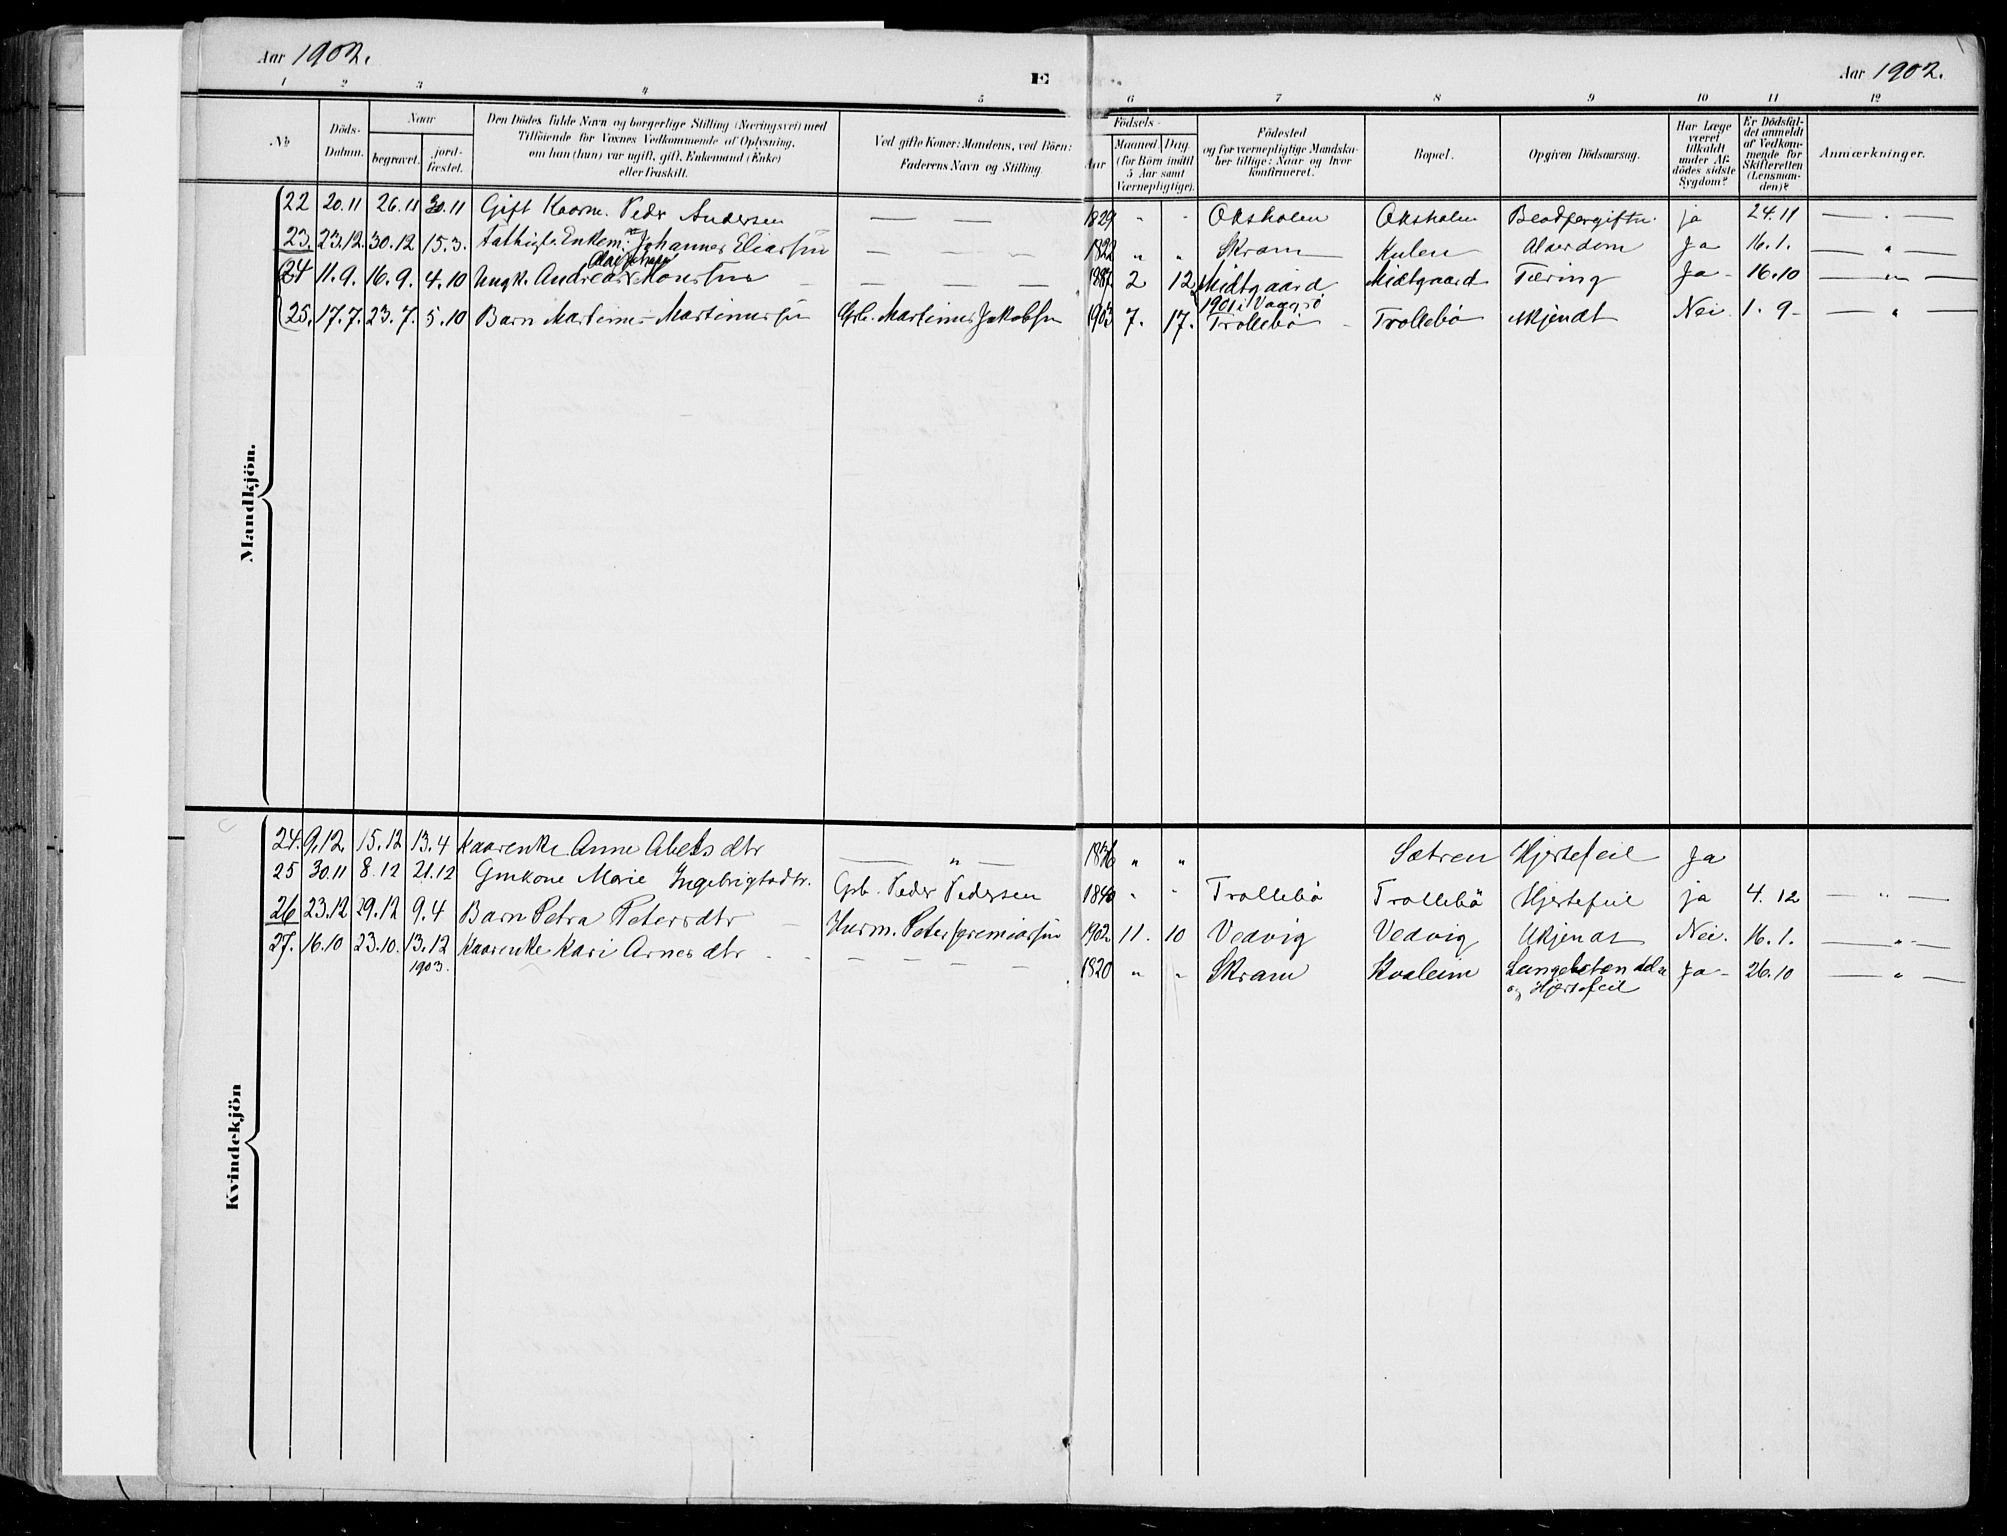 Aar 1902.
E
Aar 1902.
1 2 3 4 5 6 7 8 9 10 11 12
No
Döds-
Datum.
Naar
begravet.
jord-
fæstet.
Den Dödes fulde Navn og borgerlige Stilling (Næringsvei) med
Tilföiende for Voxnes Vedkommende af Oplysning,
om han (hun) var ugift, gift, Enkemand (Enke)
eller fraskilt.
Ved gifte Koner: Mandens, ved Börn:
Faderens Navn og Stilling
Födsels-
Aar
Maaned
(for Börn indtil
5 Aar samt
Værnepligtige).
Dag
Födested
og for værnepligtige Mandska-
ber tillige: Naar og hvor
konfirmeret.
Bopæl.
Opgiven Dödsaarsag.
Har Læge
været
tilkaldt
under Af-
dödes sidste
Sygdom?
Er Dödsfal-
det anmeldt
af Vedkom-
mende for
Skifteretten
(Lensman-
den)?
Anmærkninger.
Mandkjön.
22 20.11 26.11 30.11 Gift Kaarm. Peder Andersen — — 1829 " " Oksholen Oksholen Blodforgiftn. ja 24.11 — " —
23. 23.12. 30.12 15.3. Fattiglr. Enkem. Johannes Eliassen — — — 1822 " " Skram Kulen Alderdom Ja 16.1. — " —
24 11.9. 16.9. 4.10 Ungk. Andreas Monssen — — — — 1887 2 12 Midtgaard Midtgaard Tæring Ja - 16.10 — " —
1901 i Vaagsö
25. 17.7. 23.7. 5.10 Barn Martinus Martinussen Grb. Martinus Jakobsen 1902 7. 17. Trollebö Trollebö Ukjendt Nei 1. 9 - — " —
Kvindekjön
24. 9.12. 15.12 13.4 Kaarenke Anne Abelsdtr — " — 1836 " " Sætren Hjertefeil Ja
25 30.11 8.12 21.12 Gmkone Marie Ingebrigtsdtr. Grb. Peder Pedersen 1840 " " Trollebö Trollebö Hjertefeil ja 4. 12 — " —
26 23.12 29.12 9.4 Barn Petra Petersdtr — Husm. Peter Jeremiassen 1902 11. 10 Vedvig Vedvig Ukjendt Nei. 16.1. — " —
27. 16.10 23.10. 13.12 Kaarenke Kari Arnesdtr — — — — 1820 " " Skram Kvaleim Lungebetændelse Ja - 26.10 — " —
1903. og Hjertefeil